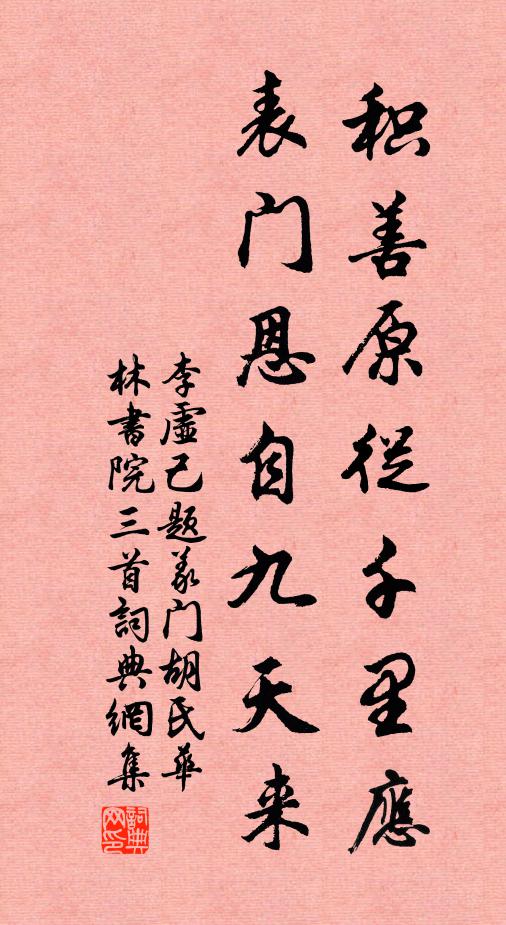 积善原從千里應
表门恩自九天来
李虛己题義门胡氏華
林書院三首詞典網集
詞典
网印